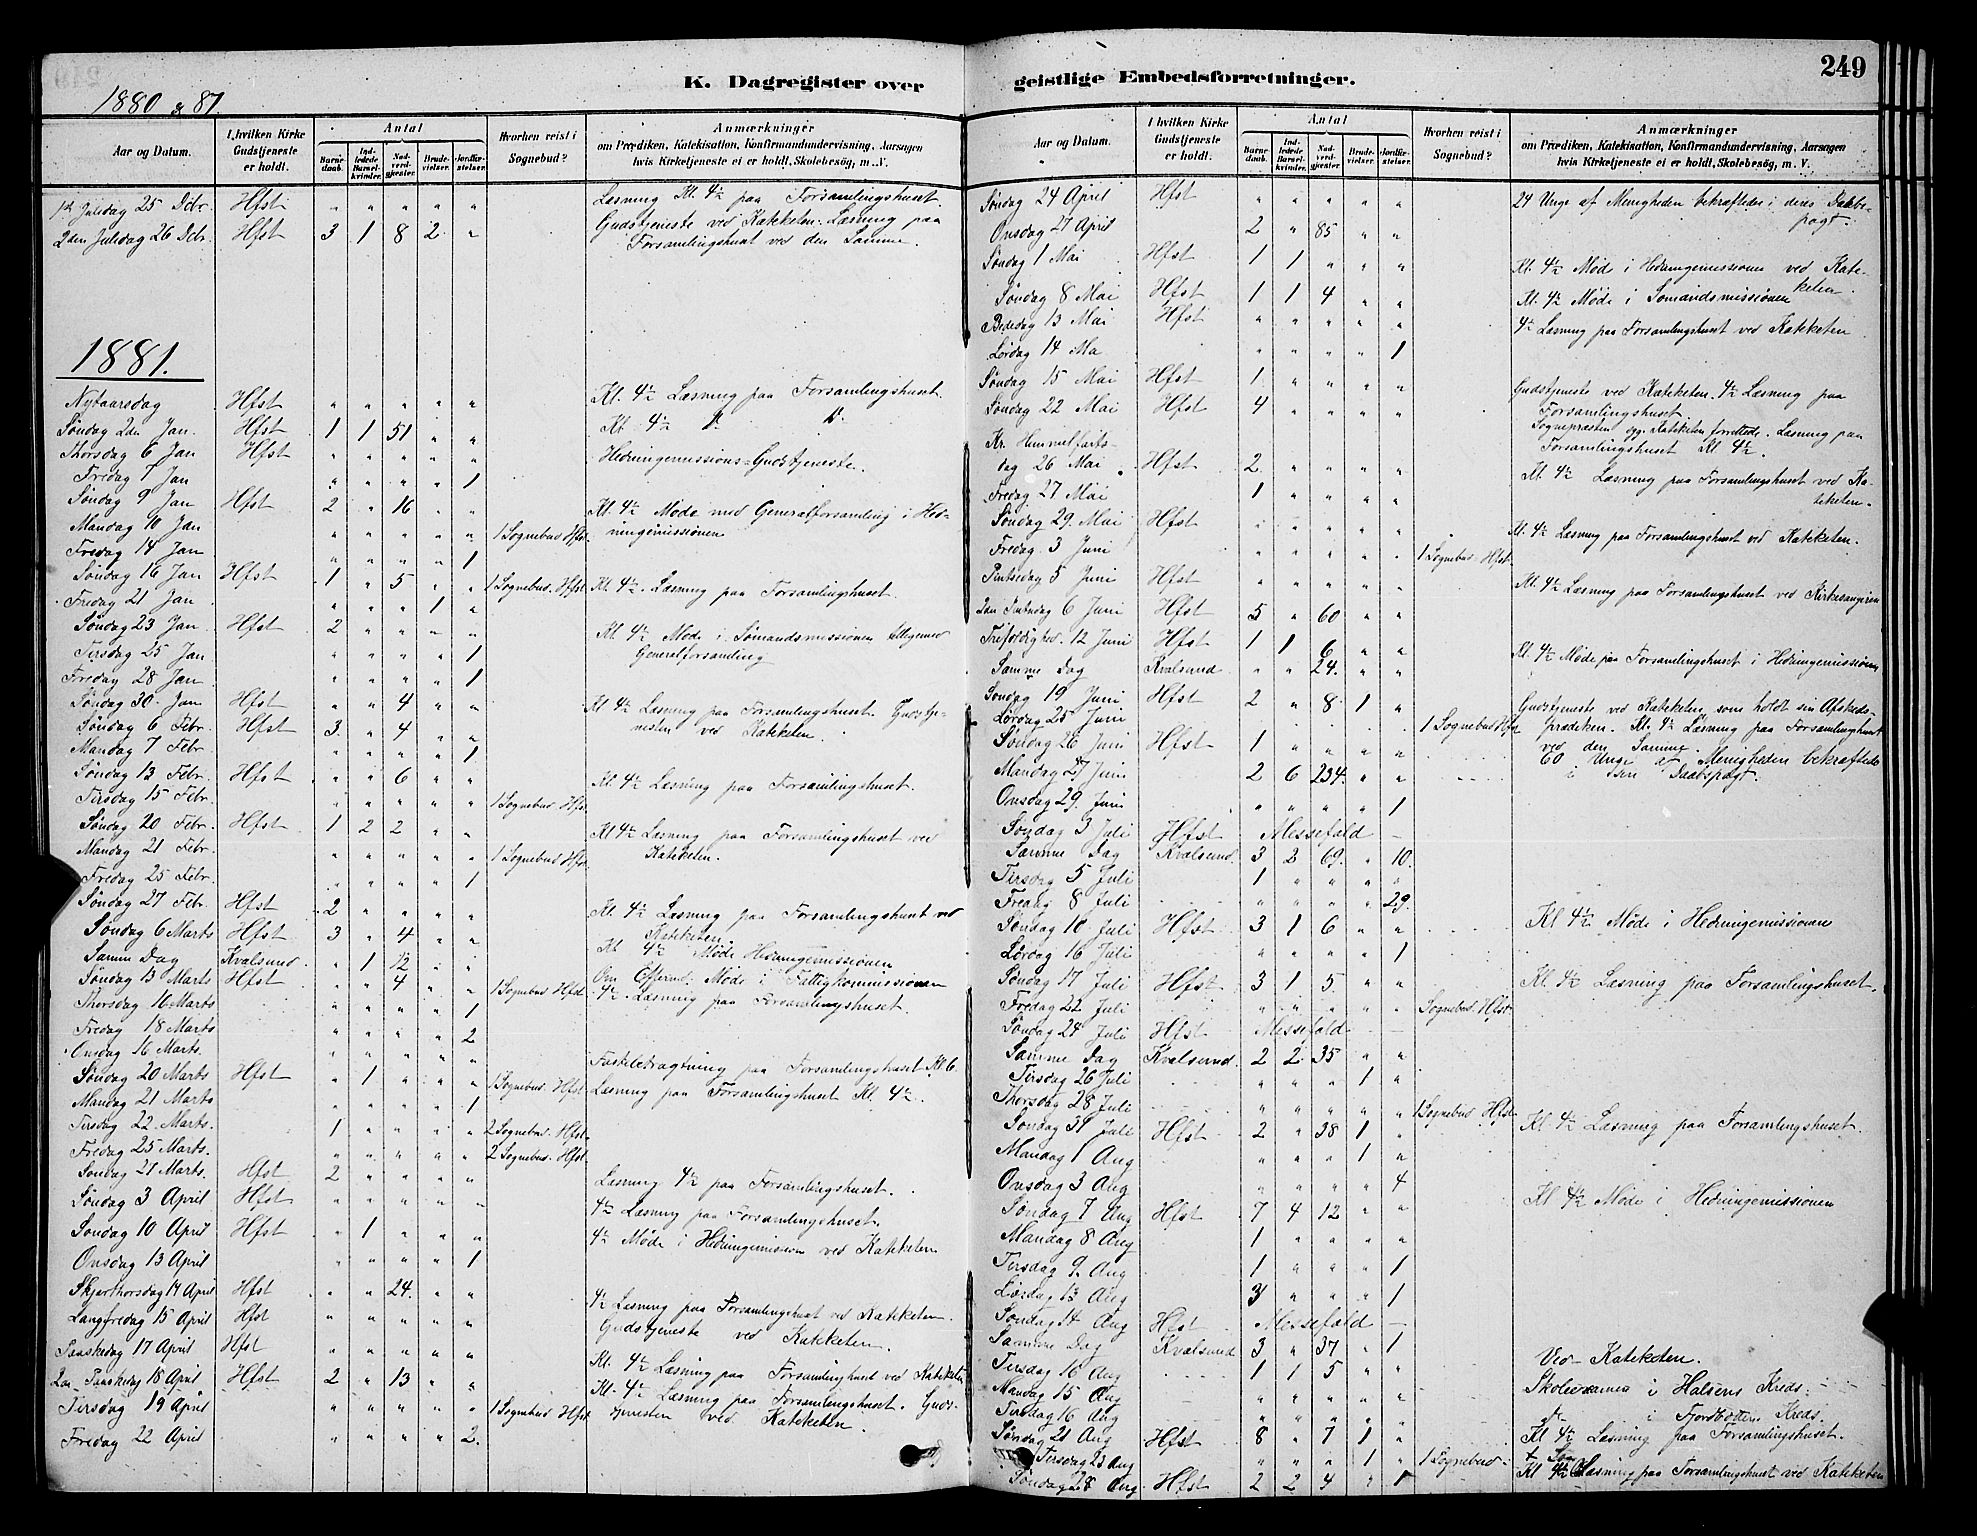 K. Dagregister over geistlige Embedsforretninger.
249
1880 & 81.
Aar og Datum. I hvilken Kirke Gudstjeneste er holdt. Antal Barnedaab. Indledede Barselkvinder. Nadverdgjester. Brudevielser. Jordfæstelser. Hvorhen reist i Sognebud? Anmærkninger om Prædiken, Katekisation, Konfirmandundervisning, Aarsagen hvis Kirketjeneste ei er holdt, Skolebesøg, m. V.
1ste Juledag 25 Dcbr. Hfst " " " " " Læsning Kl. 4½ paa Forsamlingshuset.
2den Juledag 26 Dcbr. Hfst 3 1 8 2 " Gudstjeneste ved Kateketen. Læsning paa
Forsamlingshuset ved den Samme.
1881.
Nytaarsdag Hfst " " " " " Kl. 4½ Læsning paa Forsamlingshuset.
Søndag 2den Jan. Hfst 1 1 51 " " Kl. 4½ d: d:
Thorsdag 6 Jan Hfst " " " " " Hedningemissions-Gudstjeneste.
Fredag 7 Jan " " " " 1
Søndag 9 Jan Hfst 2 " 16 " " Kl. 4½ Møde med Generalforsamling i Hed-
Mandag 10 Jan " " " " " 1 Sognebud Hfst. ningemissionen
Fredag 14 Jan " " " " 1
Søndag 16 Jan Hfst 1 " 5 " " 1 Sognebud. Hfst Kl. 4½. Læsning paa Forsamlingshuset.
Fredag 21 Jan " " " 1 "
Søndag 23 Jan Hfst 2 " " " " Kl. 4½ Møde i Sømandsmissionen tilligemed
Tirsdag 25 Jan " " " " 1 Generalforsamling
Fredag 28 Jan " " " " 1
Søndag 30. Jan Hfst " " 4 " " Kl 4½ Læsning paa Forsamlingshuset. Gudstje-
Søndag 6 Febr. Hfst 3 " 4 " " nesten ved Kateketen.
Mandag 7 Febr. " " " " 1
Søndag 13 Febr. Hfst " " 6 " " Kl. 4½ Læsning paa Forsamlingshuset.
Tirsdag 15 Febr. " " " " " 1 Sognebud Hfst.
Søndag 20 Febr. Hfst 1 2 2 " " Kl 4½ Læsning paa Forsamlingshuset ved
Mandag 21 Febr. " " " " " 1 Sognebud Hfst Kateketen.
Fredag 25 Febr. " " " " 1
Søndag 27 Febr. Hfst 2 " " " " Kl. 4½ Læsning paa Forsamlingshuset ved
Søndag 6 Marts Hfst 3 " 4 " " Kateketen.
Samme Dag Kvalsund " 1 12 " " Kl 4½ Møde Hedningemissionen
Søndag 13 Marts Hfst " " 4 " " 1 Sognebud Hfst Om Eftermd. Møde i Fattigkommissionen
Thorsdag 16 Marts " " " " 1 4½. Læsning paa Forsamlingshuset.
Fredag 18 Marts " " " " 2
Onsdag 16 Marts. " " " " " Fastebetragtning paa Forsamlingshuset Kl 6.
Søndag 20 Marts Hfst " 1 " " " 1 Sognebud. Hfst Læsning paa Forsamlingshuset Kl. 4½.
Mandag 21 Marts " " " " 1
Tirsdag 22 Marts. 1 " " " " 2 Sognebud. Hfst.
Fredag 25 Marts. " " " " " 2 Sognebud. Hfst.
Søndag 27 Marts. Hfst 2 " " " " Læsning 4½ paa Forsamlingshuset.
Søndag 3 April Hfst " " " " " 4½ Læsning paa Forsamlingshuset.
Søndag 10 April Hfst " 1 " " " 4½ Møde i Hedningemission ved Kateketen
Onsdag 13 April " " " " 1
Skjærthorsdag 14 April Hfst " " 24. " " 4½ Læsning paa Forsamlingshuset ved Kateketen.
Langfredag 15 April Hfst " " " " " Gudstjeneste ved Kateketen.
Paaskedag 17 April Hfst " " " " "
2den Paaskedag 18 April Hfst 2 " 13 " " Kl. 4½ Læsning paa Forsamlinghuset ved Kateketen
Tirsdag 19 April " " " " " 1 Sognebud Hfst Kl. 4½ Læsning paa Forsamlingshuset. Guds-
Fredag 22 April " " " " 2. tjenesten ved Kateketen.
Aar og Datum. I hvilken Kirke Gudstjeneste er holdt. Antal Barnedaab. Indledede Barselkvinder. Nadverdgjester. Brudevielser. Jordfæstelser. Hvorhen reist i Sognebud? Anmærkninger om Prædiken, Katekisation, Konfirmandundervisning, Aarsagen hvis Kirketjeneste ei er holdt, Skolebesøg, m. V.
Søndag 24 April Hfst " " " " " 24 Unge af Menigheden bekræftede i deres Daabs-
Onsdag 27 April 2 " 85 " " pagt.
Søndag 1 Mai Hfst 1 1 " " " Kl. 4½ Møde i Hedningemissionen ved Kate-
Søndag 8 Mai Hfst 1 1 4 " " Kl. 4½ Møde i Sømandsmissionen keten.
Bededag 13 Mai Hfst " " " " " 4½ Læsning paa Forsamlingshuset ved Kateketen
Lørdag 14 Ma " " " " 1
Søndag 15 Mai Hfst 1 " " " " Gudstjeneste ved Kateketen. 4½ Læsning paa
Søndag 22 Mai Hfst 4 " " " " Forsamlingshuset.
Kr. Himmelfarts- Sognepræsten og Kateketen forrettede. Læsning paa
dag 26 Mai Hfst 2 " " " " Forsamlingshuset Kl 4½.
Fredag 27 Mai 1 " " " " Kl. 4½ Læsning paa Forsamlingshuset ved Ka-
Søndag 29. Mai Hfst " " " " " teketen.
Fredag. 3 Juni " " " " " 1 Sognebud. Hfst Kl. 4½ Læsning paa Forsamlingshuset ved Kateketen.
Pintsedag 5 Juni Hfst " " " " " Kl. 4½ Læsning paa Forsamlingshuset ved Kirkesangeren
2den Pintsedag 6 Juni Hfst 5 " 60 " "
Trefoldighed. 12 Juni Hfst 1 1 6 " "
Samme Dag Kvalsund " " 24. " " Kl. 4½ Møde paa Forsamlingshuset i Hedningemissionen
Søndag 19 Juni Hfst 2 " 8 1 " Gudstjeneste ved Kateketen, som holdt sin Afskeds-
Lørdag 25 Juni 1 Sognebud Hfst prædiken. Kl. 4½ Læsning paa Forsamlinghuset
Søndag 26 Juni Hfst 1 " " " " ved den Samme.
Mandag 27 Juni 2 6 234. " " 60 Unge af Menigheden bekræftede
i sin Daabspagt.
Onsdag 29. Juni " " " " 1
Søndag 3 Juli Hfst Messefald —
Samme Dag Kvalsund. 3 2 69. " 10.
Tirsdag 5 Juli 1 " " " "
Fredag 8 Juli " " " " 29.
Søndag 10 Juli Hfst 3 1 6 " " Kl 4½ Møde i Hedningemissionen
Lørdag 16 Juli " " " " 1
Søndag 17 Juli Hfst 3 1 5. " " Kl. 4½ Læsning paa Forsamlingshuset.
Fredag 22 Juli " " " " " Sognebud. Hfst.
Søndag 24 Juli Hfst Messefald —
Samme Dag Kvalsund. 2 2. 35 " "
Tirsdag 26 Juli " " " 1 "
Thorsdag 28 Juli " " " " " 1 Sognebud Hfst
Søndag 31 Juli Hfst 2 " 38 1 " Kl 4½ Læsning paa Forsamlingshuset.
Mandag 1 Aug " " " 1 "
Onsdag 3 Aug " " " " 4
Søndag 7 Aug Hfst 7 4 12 " " Kl 4½ Møde i Hedningemissionen
Mandag 8 Aug 1 " " " "
Tirsdag 9. Aug 1 " " " 1
Lørdag 13 Aug 3 " " " 1
Søndag 14 Aug Hfst Messefald —
Samme Dag Kvalsund 3 " 37 " 1
Tirsdag 16 Aug 1 1 5 " " Ved Kateketen.
Mandag 15 Aug " " " " " Skoleexamen i Halsens Kreds.
Tirsdag 16 Aug " " " " " i Fjordbottens Kreds.
Søndag 21 Aug Hfst 8 " 7 1 " Kl 4½ Læsning paa Forsamlingshuset.
Tirsdag 23 Aug " " " 1 " 1 Sognebud
Søndag 28 Aug. Hfst 2 2 4 " 1 Kl 4½ Læsning paa Forsamlingshuset ved Kateketen